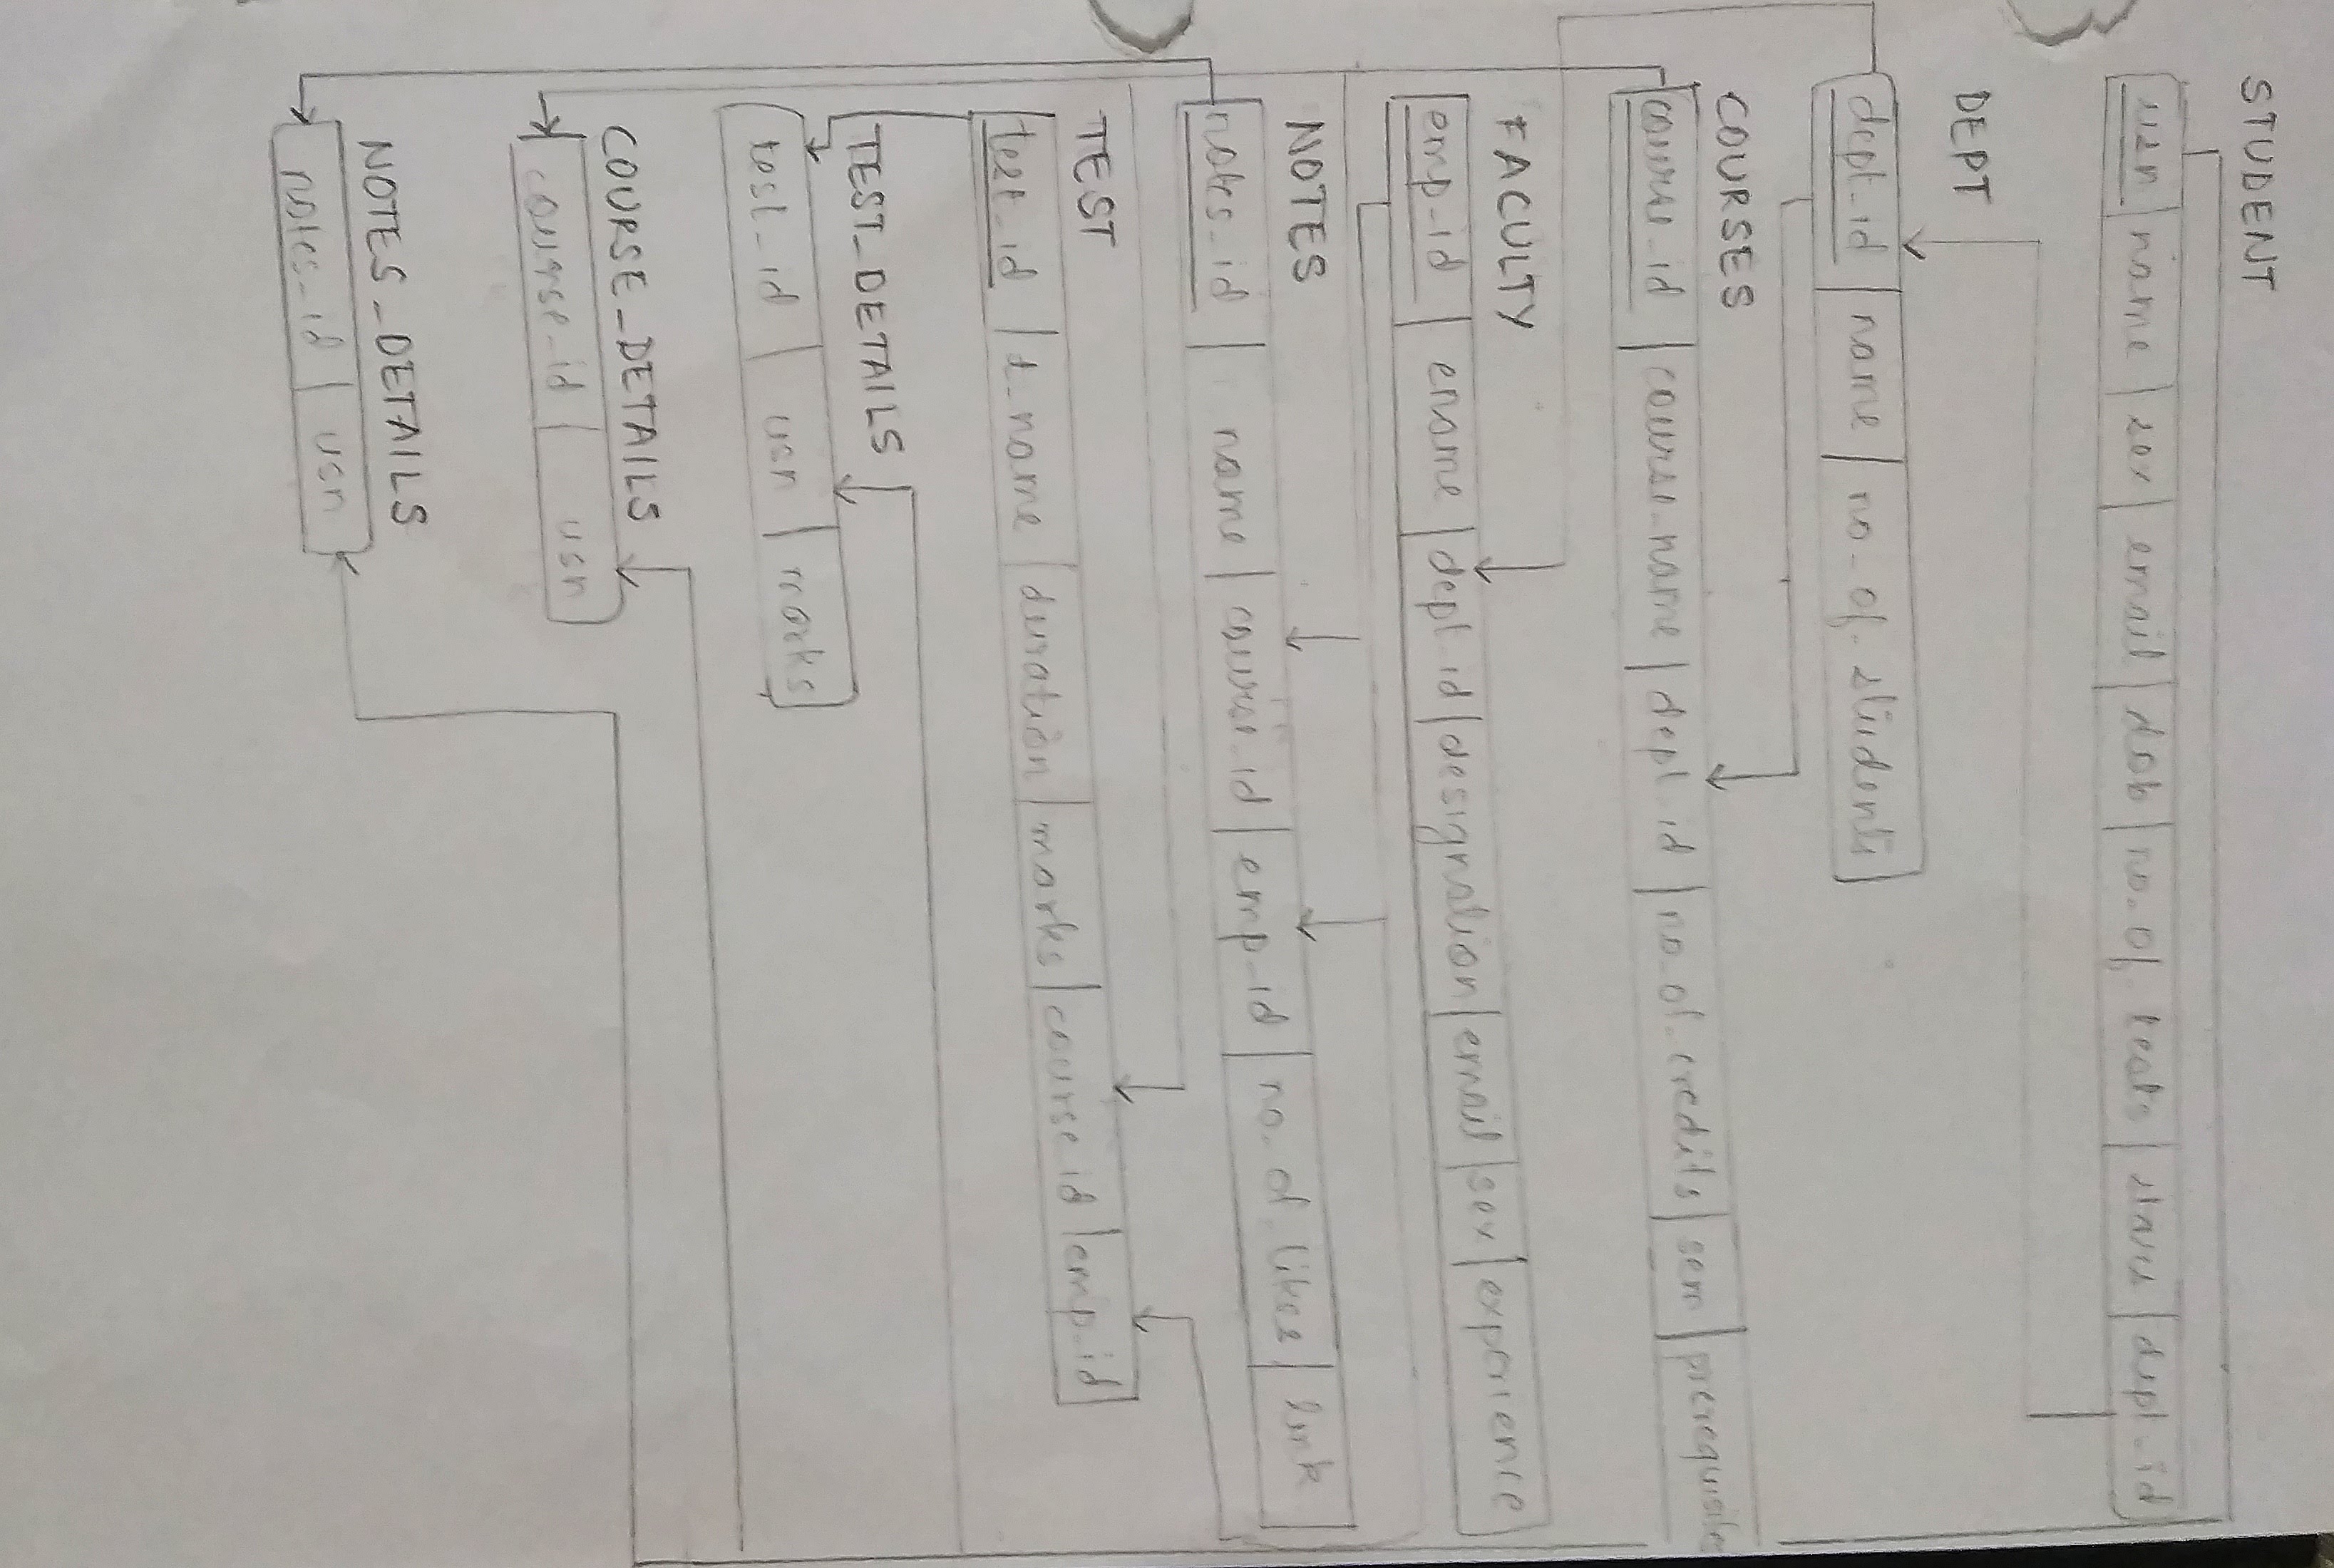 STUDENT
usn name sex email dob no. of. tests dept-id
DEPT
dept-id name no-of. students
COURSES
course-id course-name dept-id no-of. credits sem prerequisites
FACULTY
emp-id ename dept id designation email sex experience
NOTES
notes-id name course-id emp-id no. of likes link
TEST
test-id t-name duration marks course id emp-id
TEST_DETAILS
test-id usn marks
COURSE_DETAILS
course-id usn
NOTES_DETAILS
notes-id usn